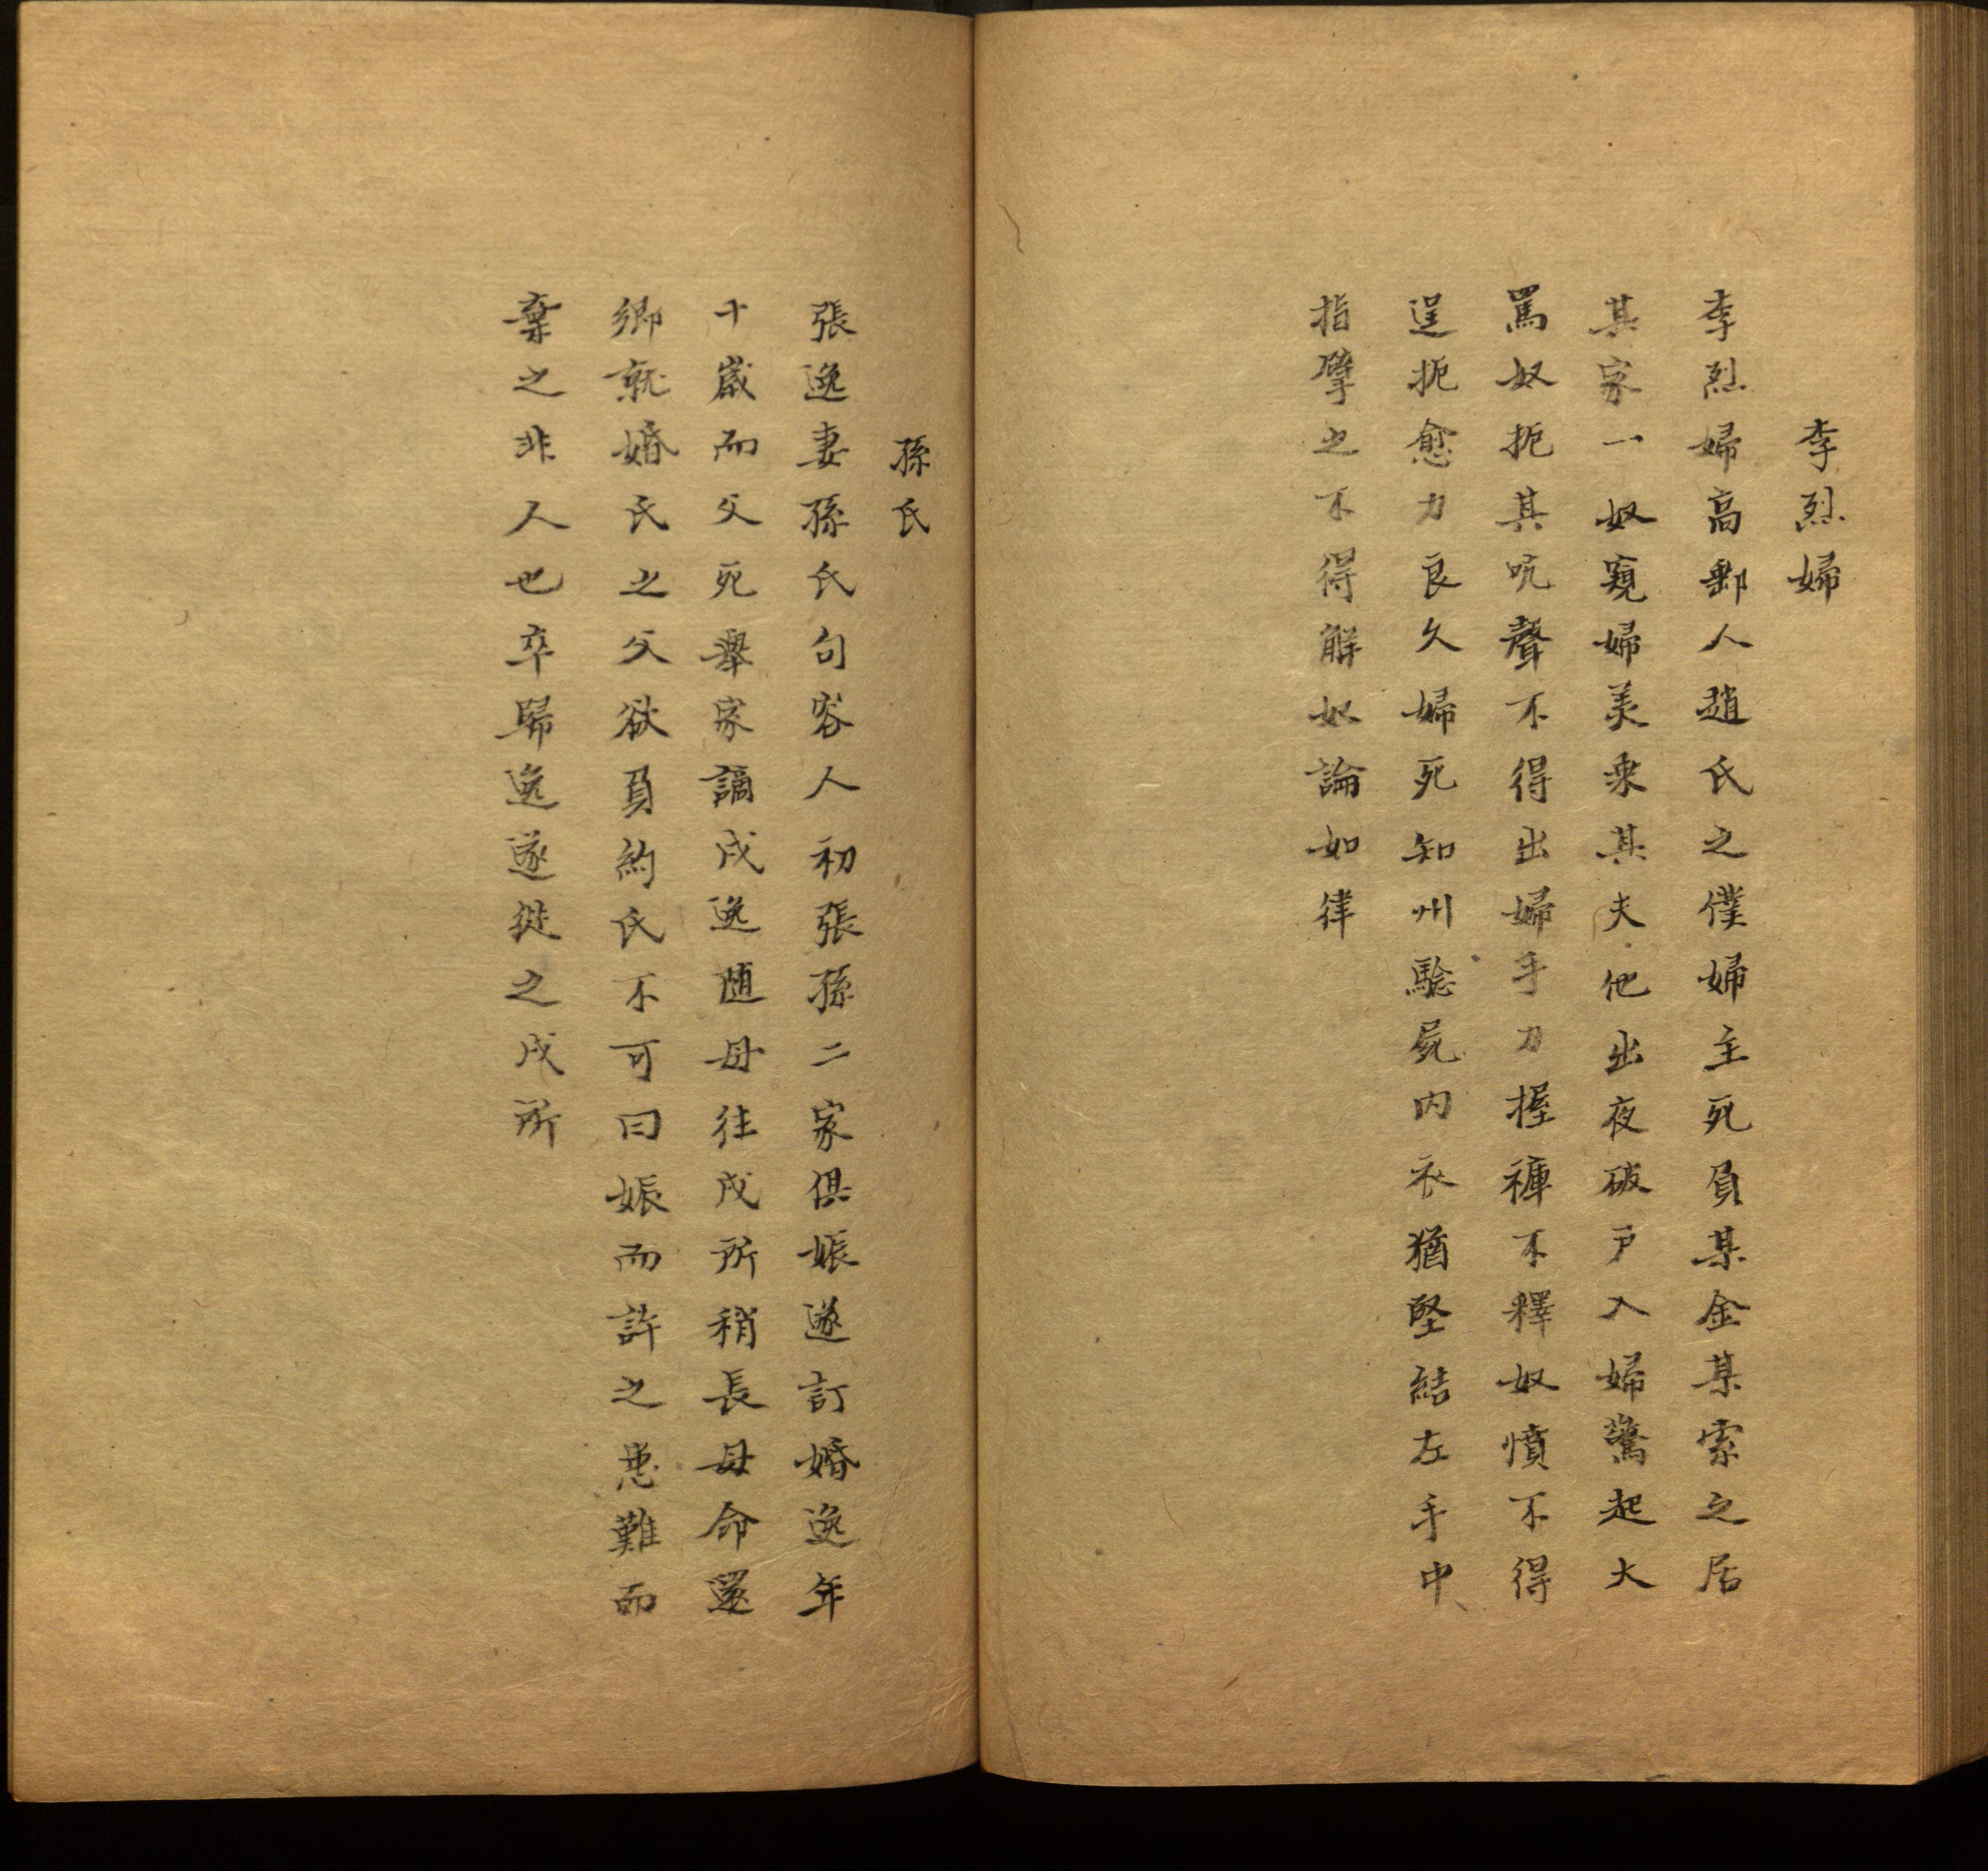 李烈婦
李烈婦高郵人趙氏之僕婦主死負某金某索之居
其家一奴窺婦美乘其夫他出夜破戸入婦驚起大
罵奴扼其吭聲不得出婦手力握褲不釋奴憤不得
逞扼愈力良久婦死知州騐屍内衣猶堅結左手中
指擘之不得解奴論如律
孫氏
張逸妻孫氏句容人初張孫二家俱娠遂訂婚逸年
十歲而父死舉家謫戍逸随母往戍所稍長母命還
鄉就婚氏之父欲負約氏不可曰娠而許之患難而
棄之非人也卒歸逸遂從之戍所